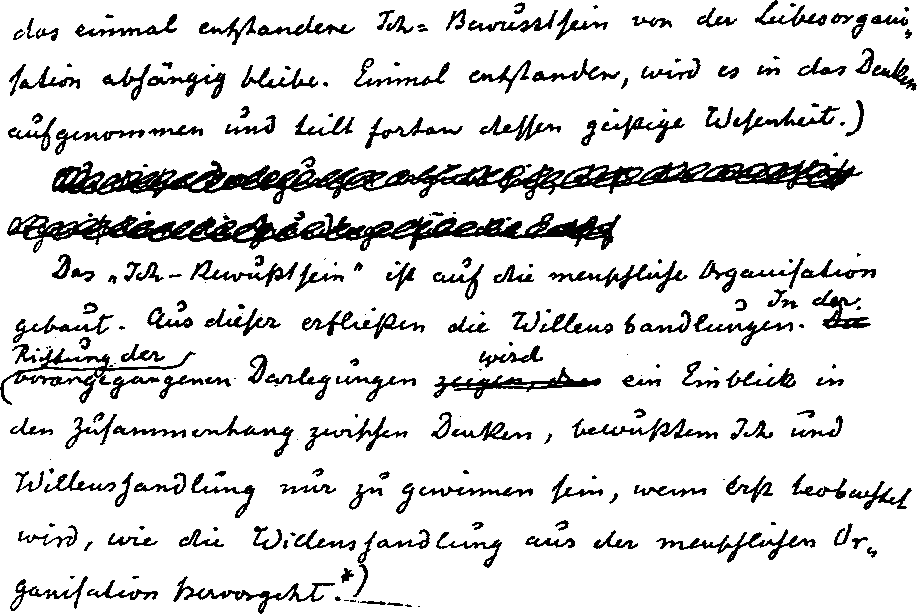 das einmal entstandene Ich-Bewusstsein von der Leibesorgani-
sation abhängig bleibe. Einmal entstanden, wird es in das Denken
aufgenommen und teilt fortan dessen geistige Wesenheit.)
Das „Ich-Bewußtsein" ist auf die menschliche Organisation
gebaut. Aus dieser erfließen die Willenshandlungen. In der
Richtung der
vorangegangenen Darlegungen wird ein Einblick in
den Zusammenhang zwischen Denken, bewußtem Ich und
Willenshandlung nur zu gewinnen sein, wenn erst beobachtet
wird, wie die Willenshandlung aus der menschlichen Or-
ganisation hervorgeht.*)